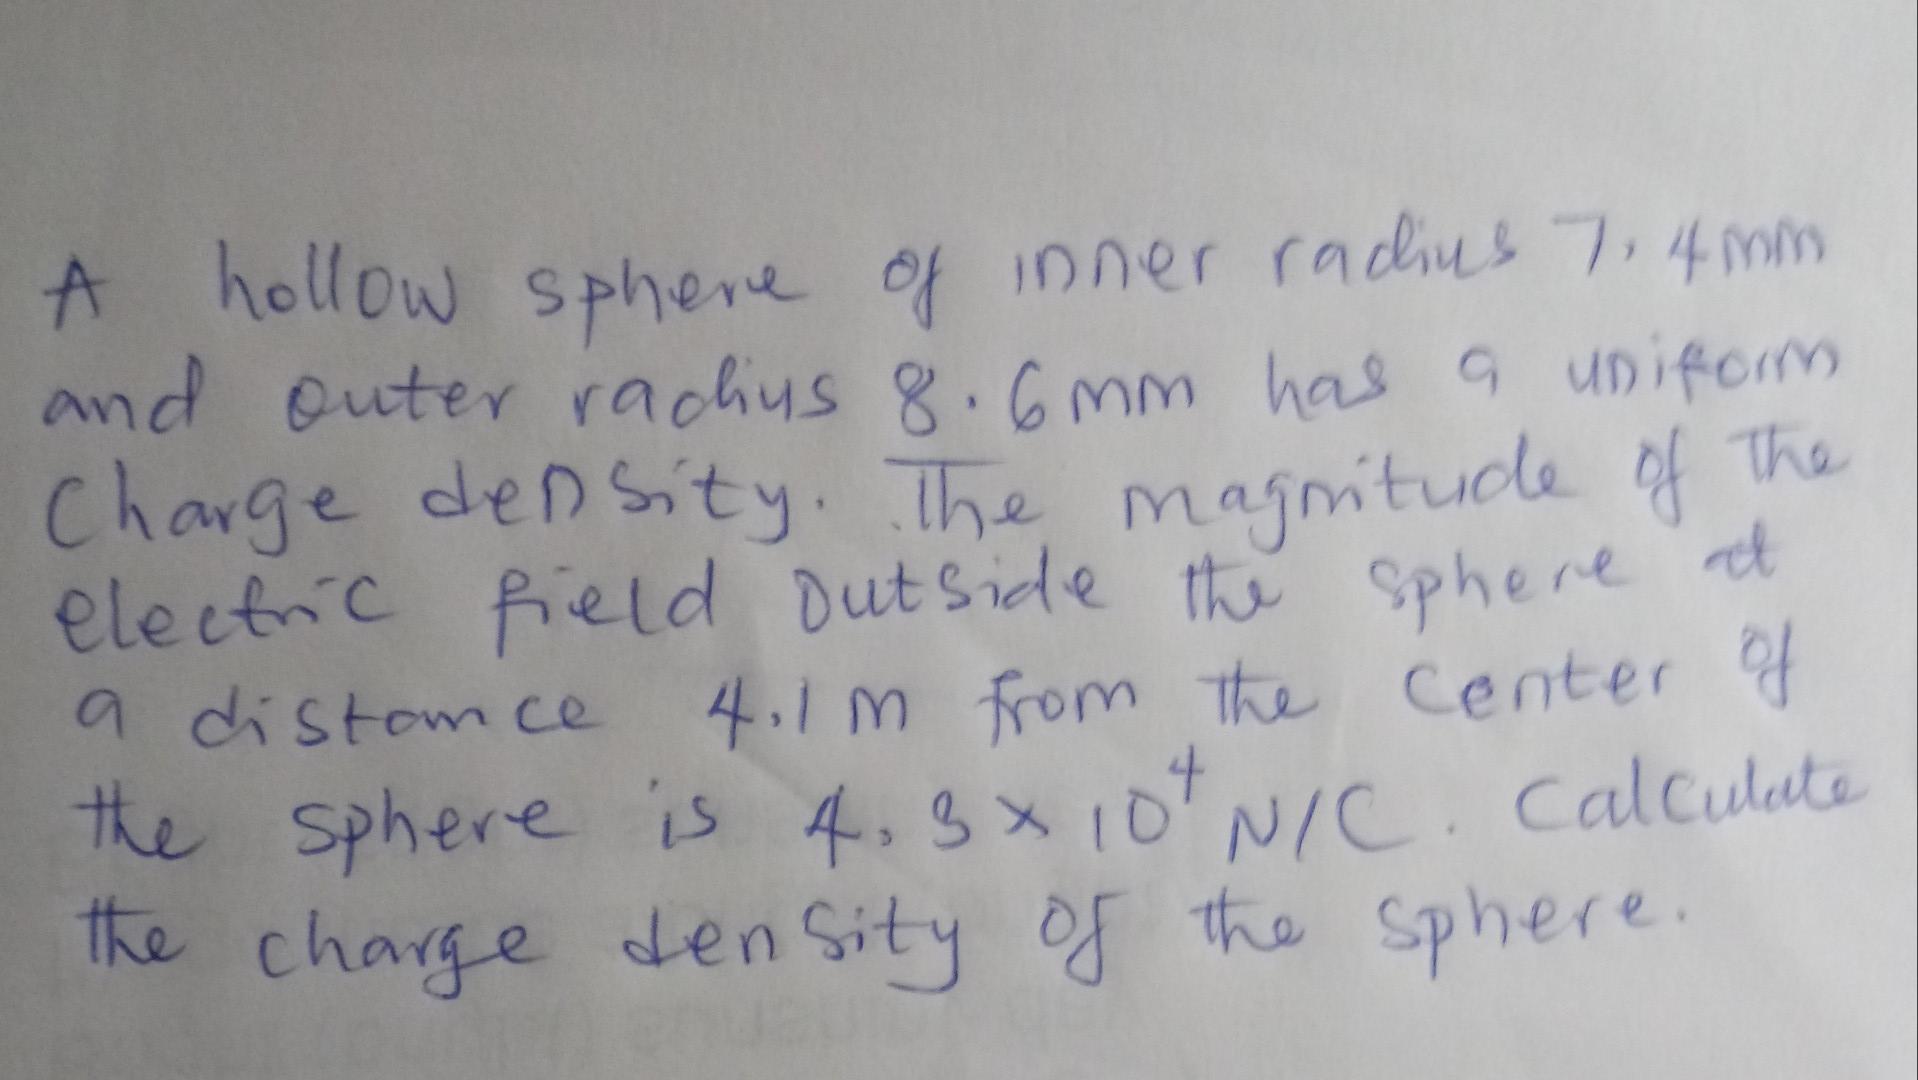 A hollow sphere of inner radius 7.4mm
and outer radius 8.6mm has a uniform
Charge density. The magnitude of the
electric field outside the sphere at
a distance 4.1m from the center of
the sphere is 4.3×10⁴ N/C. Calculate
the charge density of the sphere.